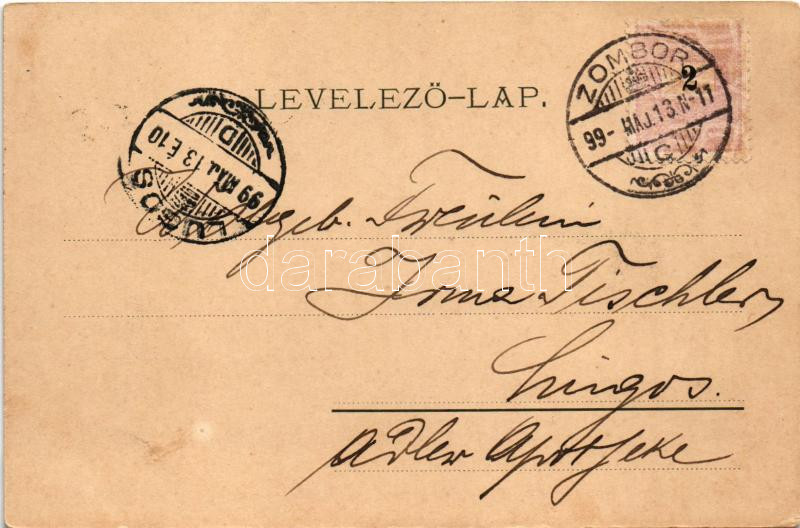 LEVELEZŐ-LAP.
ZOMBOR
2
99-MÁJ.13.N-11
G
LUGOS
99 MÁJ. 13 É 10
D
darabanth
geb. Fräulein
Irma Tischler
Lugos.
Adler Apotheke